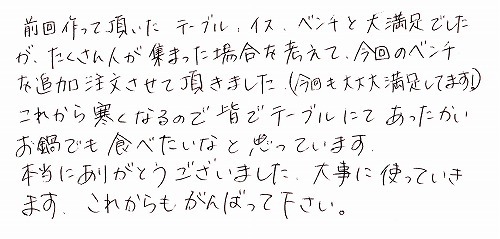 前回作って頂いた テーブル、イス、ベンチと大満足でした
が、たくさん人が集まった場合を考えて、今回のベンチ
を追加注文させて頂きました。(今回も大大大満足してます!)
これから寒くなるので皆でテーブルにてあったかい
お鍋でも食べたいなと思っています。
本当にありがとうございました。大事に使っていき
ます。これからもがんばって下さい。